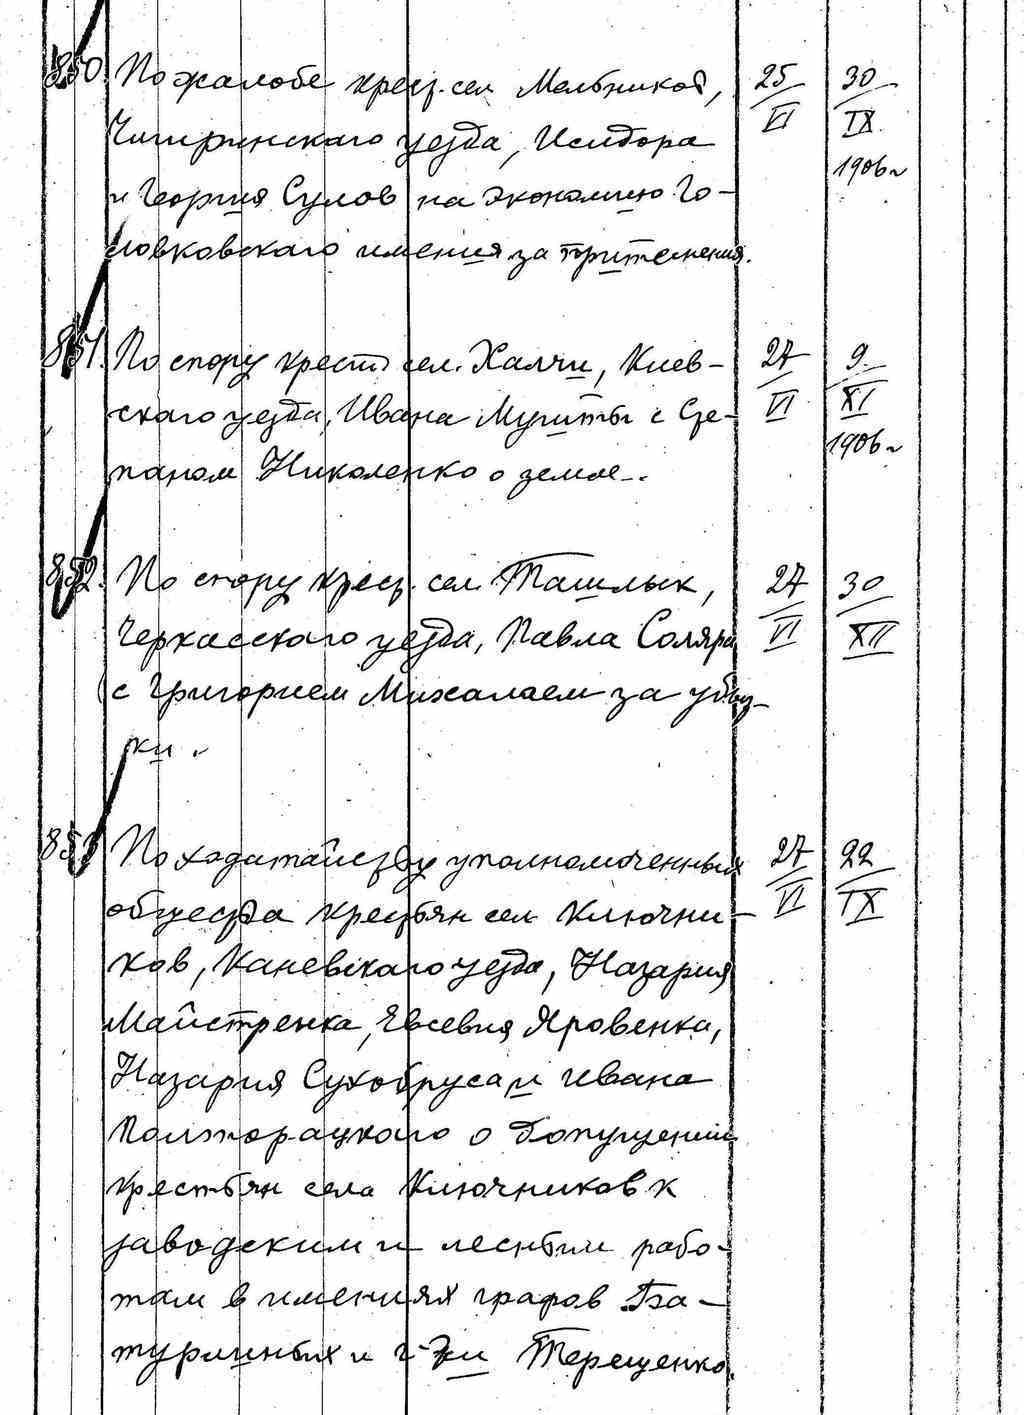 850. По жалобе крест. сел Мельников, 25/VI 30/IX 1906 г
Чигиринского уезда, Исидора
и Георгия Сулов на экономию Го-
ловковского имения за притеснения.
851. По спору крест. сел. Халчи, Киев- 27/VI 9/XI 1906 г
ского уезда, Ивана Мушты с Сте-
паном Николенко о земле.
852. По спору крест. сел Ташлык, 27/VI 30/XII
Черкасского уезда, Павла Соляра
с Григорием Михалаем за убыт-
ки.
853. По ходатайству уполномоченных 27/VI 22/IX
общества крестьян сел Ключни-
ков, Каневского уезда, Назария
Майстренка, Евсевия Яровенка,
Назария Сухобруса и Ивана
Полторацкого о допущении
крестьян села Ключников к
заводским и лесным рабо-
там в имениях графов Ба-
туриных и г-жи Терещенко.